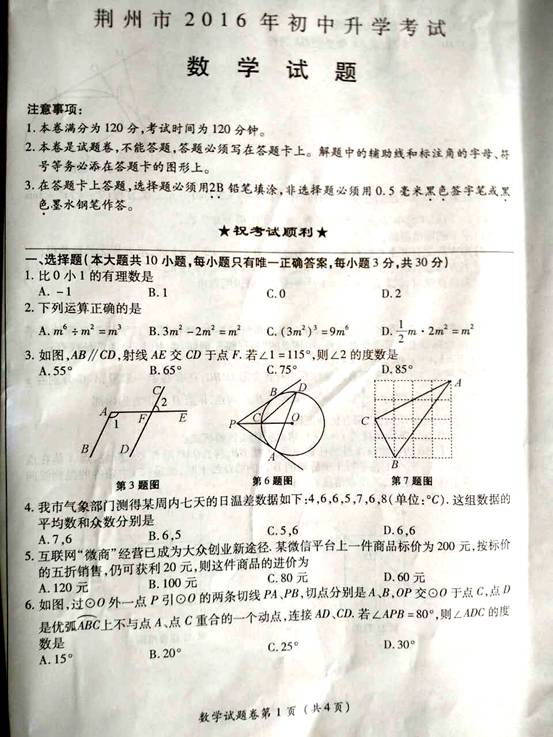 荆州市2016年初中升学考试
数学试题
注意事项:
1.本卷满分为120分,考试时间为120分钟。
2.本卷是试题卷,不能答题,答题必须写在答题卡上。解题中的辅助线和标注角的字母、符
号等务必添在答题卡的图形上。
3.在答题卡上答题,选择题必须用2B铅笔填涂,非选择题必须用0.5毫米黑色签字笔或黑
色墨水钢笔作答。
★祝考试顺利★
一、选择题(本大题共10小题,每小题只有唯一正确答案,每小题3分,共30分)
1.比0小1的有理数是
A.-1 B.1 C.0 D.2
2.下列运算正确的是
A.m⁶÷m²=m³ B.3m²-2m²=m² C.(3m²)³=9m⁶ D.1/2m·2m²=m²
3.如图,AB∥CD,射线AE交CD于点F.若∠1=115°,则∠2的度数是
A.55° B.65° C.75° D.85°
C 2 A 1 F E B D
B D P C O A
A C B
第3题图 第6题图 第7题图
4.我市气象部门测得某周内七天的日温差数据如下:4,6,6,5,7,6,8(单位:°C).这组数据的
平均数和众数分别是
A.7,6 B.6,5 C.5,6 D.6,6
5.互联网“微商”经营已成为大众创业新途径.某微信平台上一件商品标价为200元,按标价
的五折销售,仍可获利20元,则这件商品的进价为
A.120元 B.100元 C.80元 D.60元
6.如图,过⊙O外一点P引⊙O的两条切线PA、PB,切点分别是A、B,OP交⊙O于点C,点D
是优弧ABC上不与点A、点C重合的一个动点,连接AD、CD.若∠APB=80°,则∠ADC的度
数是
A.15° B.20° C.25° D.30°
数学试题卷第1页(共4页)